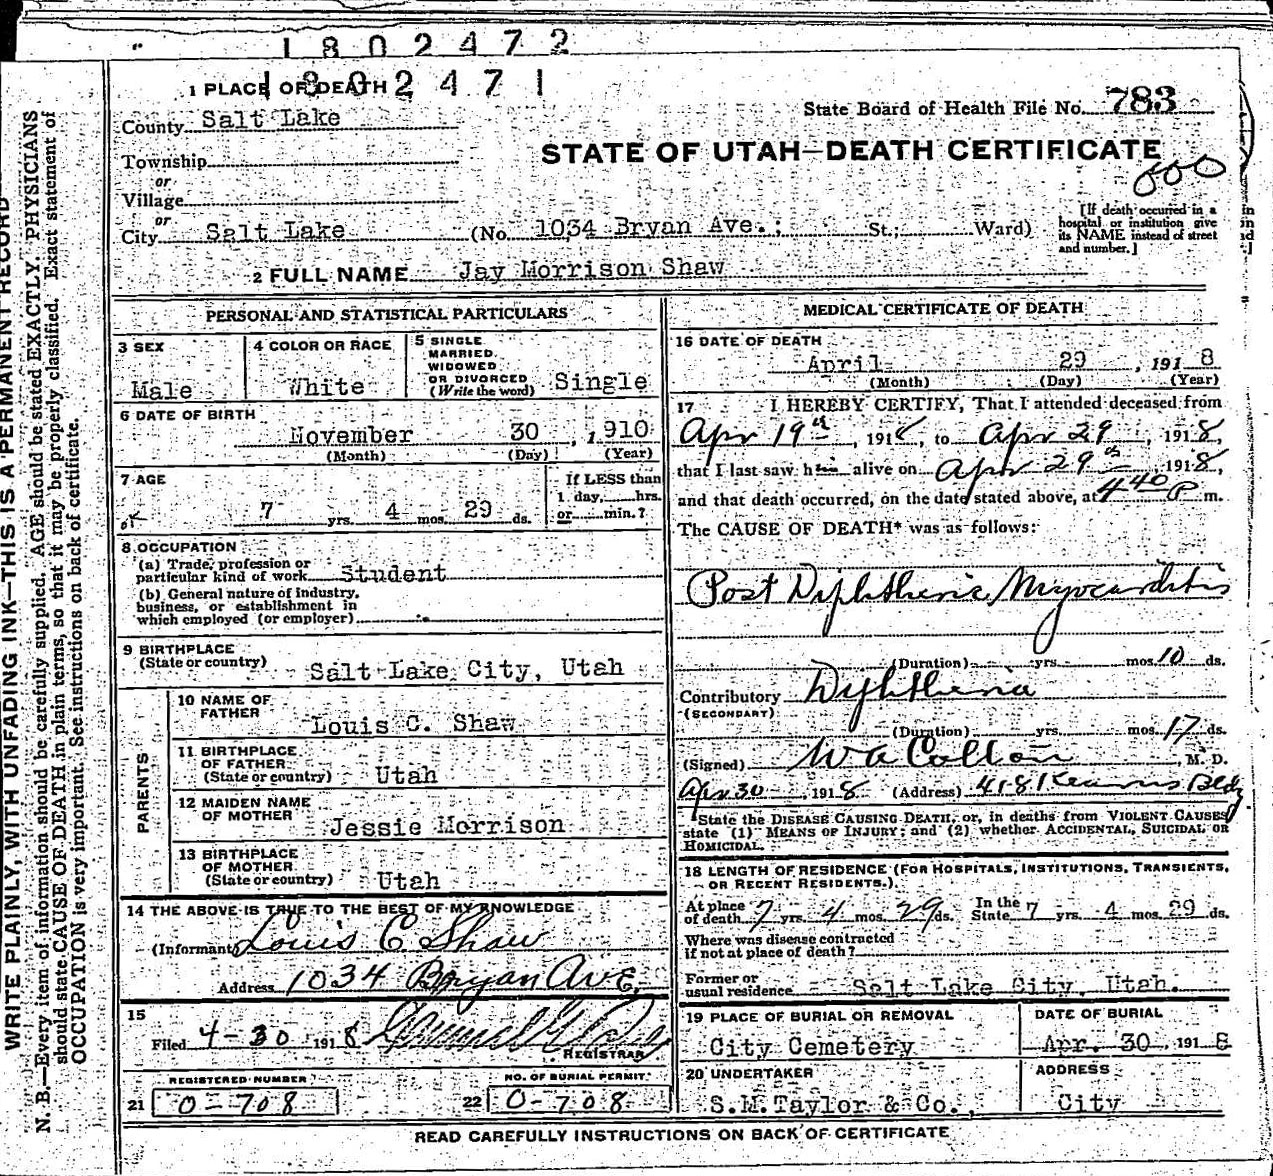 1802472
1802471
1 PLACE OF DEATH
State Board of Health File No. 783
County Salt Lake
STATE OF UTAH—DEATH CERTIFICATE
Township
or
Village
or
City Salt Lake (No. 1034 Bryan Ave.; St.; Ward)
[If death occurred in a
hospital or institution give
its NAME instead of street
and number.]
2 FULL NAME Jay Morrison Shaw
PERSONAL AND STATISTICAL PARTICULARS
3 SEX
Male
4 COLOR OR RACE
White
5 SINGLE
MARRIED
WIDOWED
OR DIVORCED
(Write the word) Single
6 DATE OF BIRTH
November 30, 1910
(Month) (Day) (Year)
7 AGE
If LESS than
1 day, hrs.
or min.?
7 yrs. 4 mos. 29 ds.
8 OCCUPATION
(a) Trade, profession or
particular kind of work Student
(b) General nature of industry,
business, or establishment in
which employed (or employer)
9 BIRTHPLACE
(State or country) Salt Lake City, Utah
PARENTS
10 NAME OF
FATHER
Louis C. Shaw
11 BIRTHPLACE
OF FATHER
(State or country) Utah
12 MAIDEN NAME
OF MOTHER
Jessie Morrison
13 BIRTHPLACE
OF MOTHER
(State or country) Utah
14 THE ABOVE IS TRUE TO THE BEST OF MY KNOWLEDGE
(Informant) Louis C Shaw
Address 1034 Bryan Ave.
15
Filed 4-30 1918
REGISTRAR
REGISTERED NUMBER
21 0-708
NO. OF BURIAL PERMIT
22 0-708
MEDICAL CERTIFICATE OF DEATH
16 DATE OF DEATH
April 29, 1918
(Month) (Day) (Year)
17 I HEREBY CERTIFY, That I attended deceased from
Apr 19th, 1918, to Apr 29, 1918,
that I last saw him alive on Apr 29th, 1918,
and that death occurred, on the date stated above, at 4 40 P m.
The CAUSE OF DEATH* was as follows:
Post Diphtheric Myocarditis
(Duration) yrs. mos. 10 ds.
Contributory Diphtheria
(SECONDARY)
(Duration) yrs. mos. 17 ds.
(Signed) W A Calton, M. D.
Apr 30, 1918 (Address) 418 Kearns Bldg
*State the DISEASE CAUSING DEATH, or, in deaths from VIOLENT CAUSES
state (1) MEANS OF INJURY; and (2) whether ACCIDENTAL, SUICIDAL OR
HOMICIDAL.
18 LENGTH OF RESIDENCE (FOR HOSPITALS, INSTITUTIONS, TRANSIENTS,
OR RECENT RESIDENTS.)
At place
of death 7 yrs. 4 mos. 29 ds. In the
State 7 yrs. 4 mos. 29 ds.
Where was disease contracted
if not at place of death?
Former or
usual residence Salt Lake City, Utah.
19 PLACE OF BURIAL OR REMOVAL
City Cemetery
DATE OF BURIAL
Apr. 30, 1918
20 UNDERTAKER
S.M. Taylor & Co.,
ADDRESS
City
READ CAREFULLY INSTRUCTIONS ON BACK OF CERTIFICATE
WRITE PLAINLY, WITH UNFADING INK—THIS IS A PERMANENT RECORD
N. B.—Every item of information should be carefully supplied. AGE should be stated EXACTLY. PHYSICIANS
should state CAUSE OF DEATH in plain terms, so that it may be properly classified. Exact statement of
OCCUPATION is very important. See instructions on back of certificate.